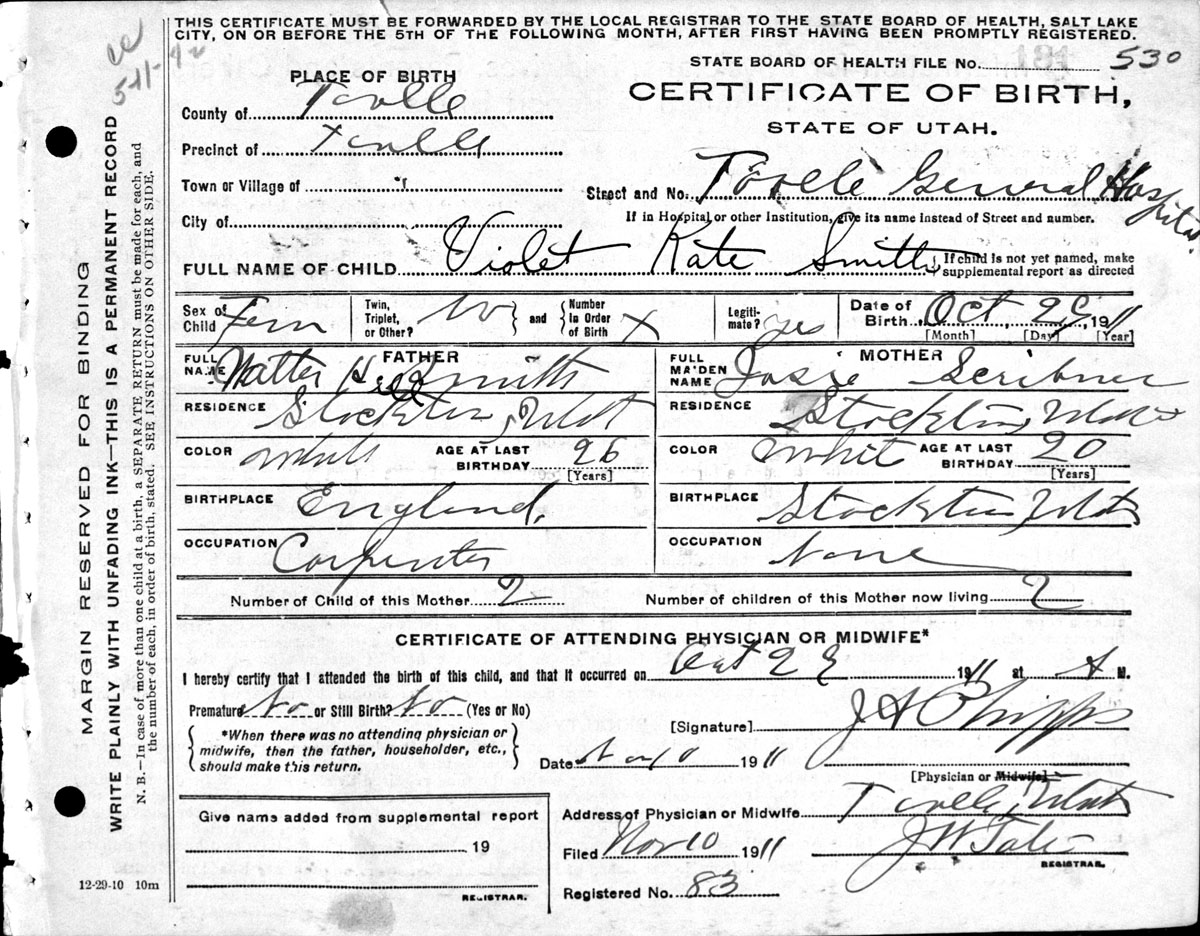 THIS CERTIFICATE MUST BE FORWARDED BY THE LOCAL REGISTRAR TO THE STATE BOARD OF HEALTH, SALT LAKE
CITY, ON OR BEFORE THE 5TH OF THE FOLLOWING MONTH, AFTER FIRST HAVING BEEN PROMPTLY REGISTERED.
STATE BOARD OF HEALTH FILE No. 530
PLACE OF BIRTH
CERTIFICATE OF BIRTH,
STATE OF UTAH.
County of Tooele
Precinct of Tooele
Town or Village of
Street and No. Tooele General Hospital
City of
If in Hospital or other Institution, give its name instead of Street and number.
FULL NAME OF CHILD Violet Kate Smith { If child is not yet named, make supplemental report as directed
Sex of Child Fem Twin, Triplet, or Other? } and { Number in Order of Birth X Legitimate? Yes Date of Birth Oct 29, 1911
[Month] [Day] [Year]
FULL NAME FATHER Walter Hill Smith
FULL MAIDEN NAME MOTHER Josie Scribner
RESIDENCE Stockton, Utah
RESIDENCE Stockton, Utah
COLOR White AGE AT LAST BIRTHDAY 26 [Years]
COLOR White AGE AT LAST BIRTHDAY 20 [Years]
BIRTHPLACE England.
BIRTHPLACE Stockton, Utah
OCCUPATION Carpenter
OCCUPATION None
Number of Child of this Mother 2 Number of children of this Mother now living 2
CERTIFICATE OF ATTENDING PHYSICIAN OR MIDWIFE*
I hereby certify that I attended the birth of this child, and that it occurred on Oct 29 1911 at A M.
Premature No or Still Birth? No (Yes or No)
[Signature] J A Phipps
*When there was no attending physician or
midwife, then the father, householder, etc.,
should make this return.
Date Nov 10 1911
[Physician or Midwife]
Give name added from supplemental report
19
REGISTRAR.
Address of Physician or Midwife Tooele, Utah
Filed Nov 10 1911
REGISTRAR.
Registered No. 83
12-29-10 10m
MARGIN RESERVED FOR BINDING
WRITE PLAINLY WITH UNFADING INK—THIS IS A PERMANENT RECORD
N. B.—In case of more than one child at a birth, a SEPARATE RETURN must be made for each, and
the number of each, in order of birth, stated. SEE INSTRUCTIONS ON OTHER SIDE.